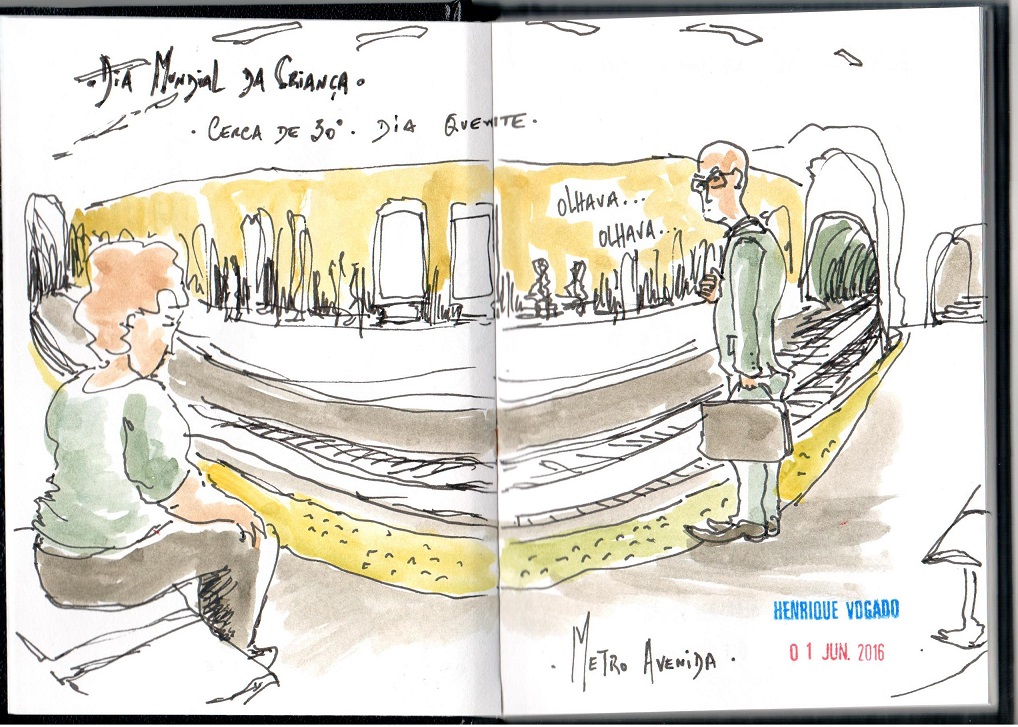 . Dia Mundial da Criança .
. Cerca de 30°. Dia Quente .
Olhava...
Olhava...
HENRIQUE VOGADO
01 JUN. 2016
. Metro Avenida .